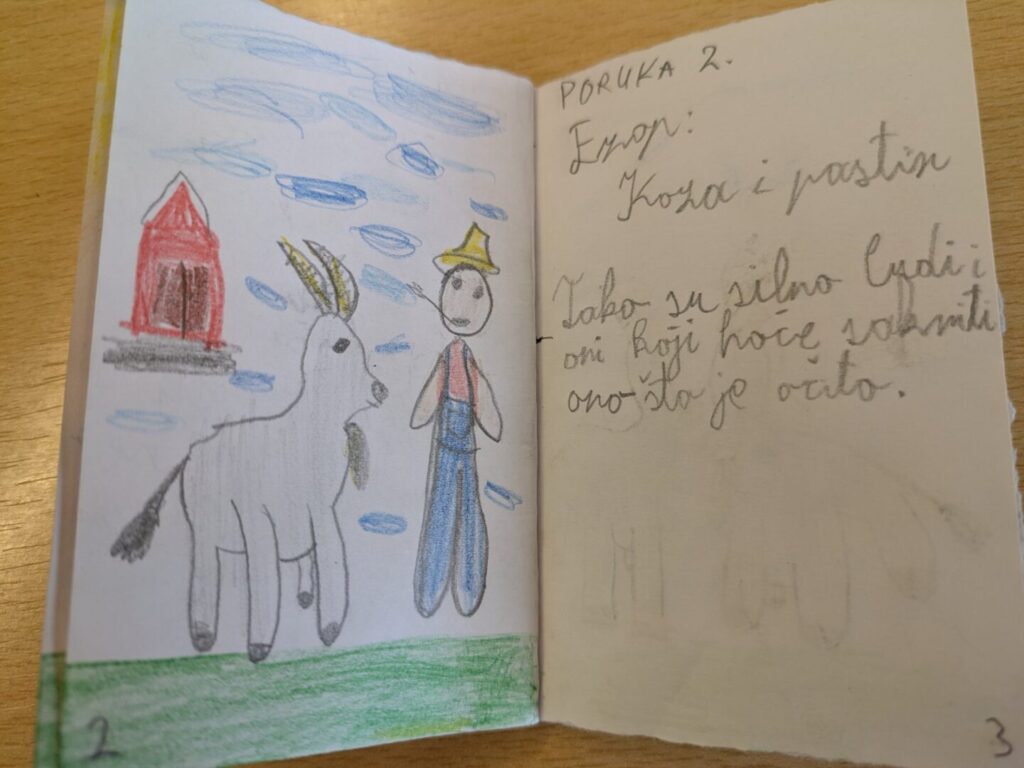 2
PORUKA 2.
Ezop:
Koza i pastir
Tako su silno ludi i
oni koji hoće sakriti
ono što je očito.
3